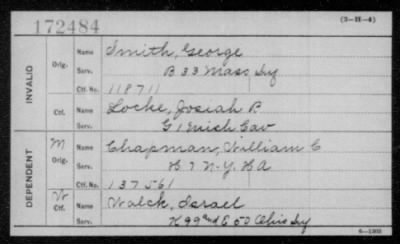 172484 (3-H-4)
INVALID
Orig. Name Smith, George
Serv. B 33 Mass Inf
Ctf. No. 118711
Ctf. Name Locke, Josiah P.
Serv. G 1 Mich Cav
DEPENDENT
M Orig. Name Chapman, William C
Serv. H 7 N.Y. HA
Ctf. No. 137561
Ctf. Name Walck, Israel
Serv. K 99 and E 50 Ohio Inf